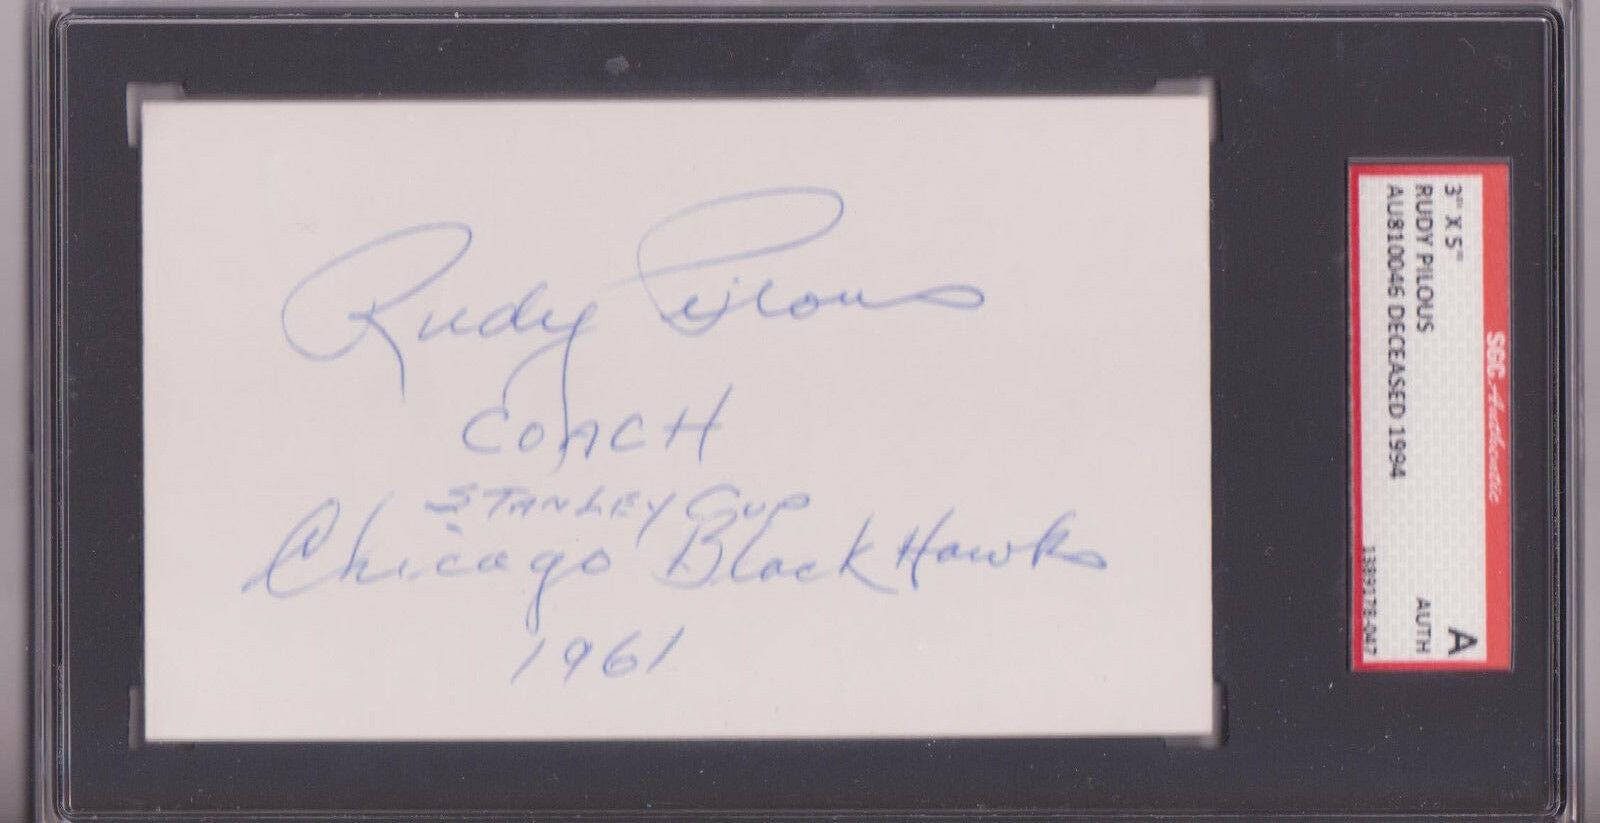 Rudy Pilous
COACH
STANLEY CUP
Chicago Black Hawks
1961
SGC Authentic
3" X 5"
RUDY PILOUS
AU8100046 DECEASED 1994
A
AUTH
1389178-047